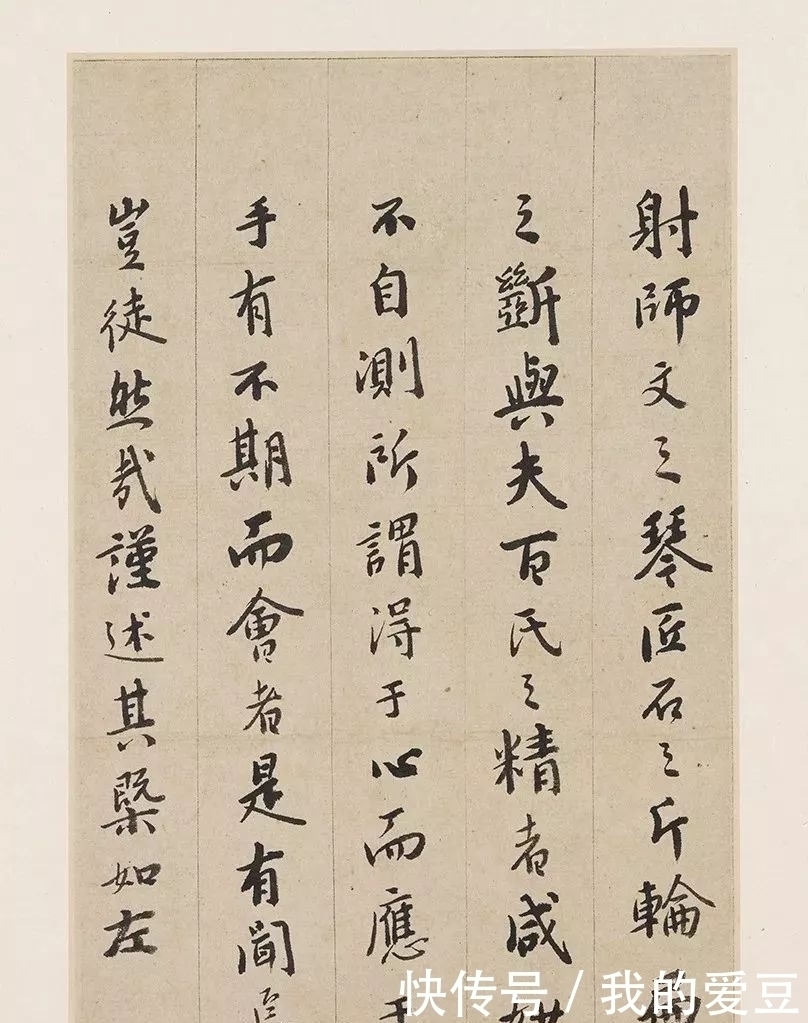 射師文之琴匠石之斤輪
之斲與夫百氏之精者咸
不自測所謂得于心而應
手有不期而會者是有聞
豈徒然哉謹述其槩如左
快传号/我的爱豆